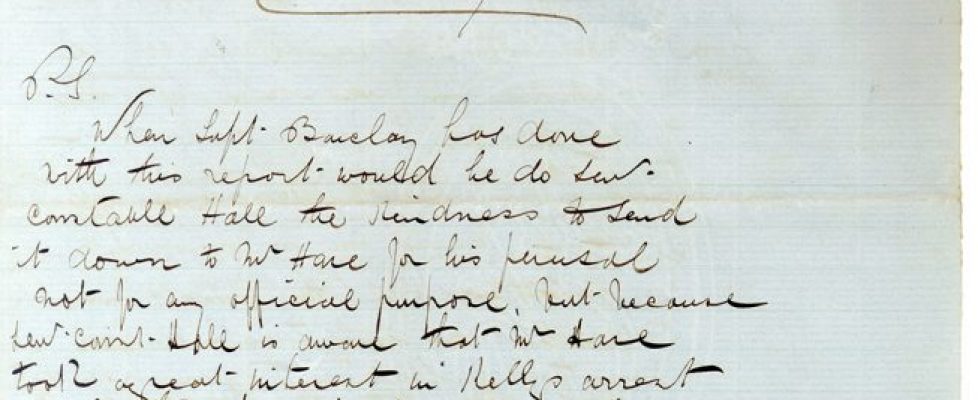 P.S.
When Supt. Barclay has done
with this report would he do Sen.
Constable Hall the kindness to send
it down to Mr Hare for his perusal
not for any official purpose, but because
Sen. Const. Hall is aware that Mr Hare
took a great interest in Kellys arrest